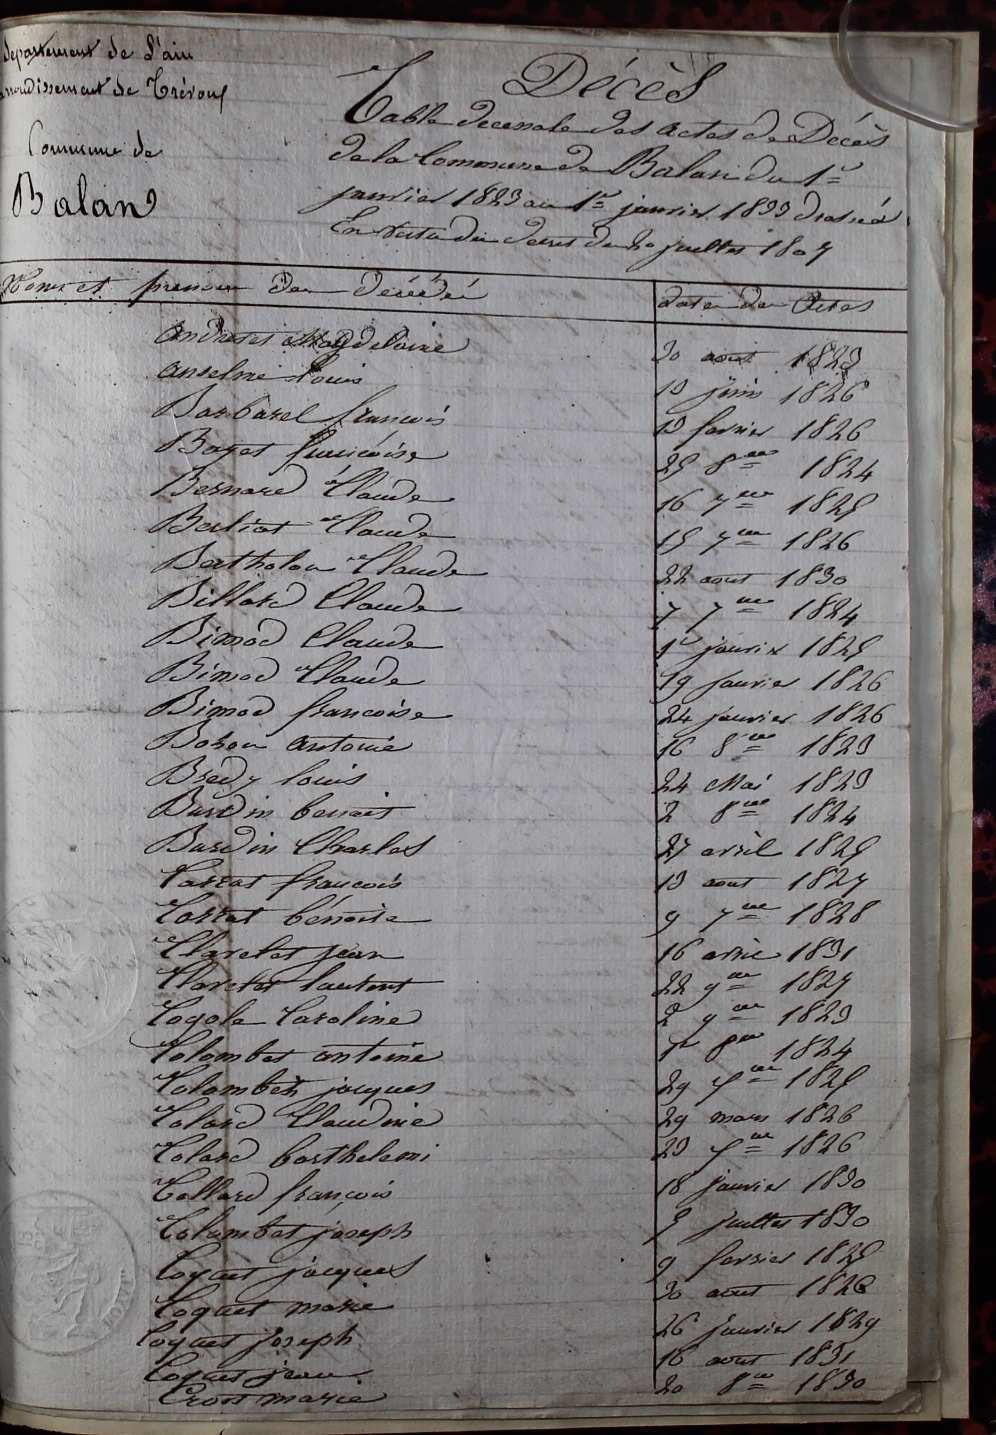 departement de l'ain
arrondissement de Trévoux
Commune de
Balan
Décès
Table decennale des actes de Décès
de la Commune de Balan du 1er
janvier 1823 au 1er janvier 1833 dressée
En vertu du decret du 20 juillet 1807
Noms et prenoms des décédés
date des Actes
Magdelaine 20 aout 1823
anselme louis 19 juin 1826
Barbarel françois 19 fevrier 1826
Boyet françoise 25 8bre 1824
Bernard Claude 16 7bre 1825
Berliat Claude 15 7bre 1826
Bertholon Claude 22 aout 1830
Billard Claude 7 7bre 1824
Bimod Claude 1er janvier 1825
Bimod Claude 19 janvier 1826
Bimod francoise 24 janvier 1826
Bozon antoine 16 8bre 1823
Bredy louis 24 Mai 1823
Burdin benoit 2 8bre 1824
Burdin Charles 27 avril 1825
Carrat francois 13 aout 1827
Carrat bénoite 9 7bre 1828
Claretet jean 16 avril 1831
Claretet laurent 22 9bre 1827
Cogole Caroline 2 9bre 1823
Colombet antoine 1er 8bre 1824
Colombet jacques 29 1825
Colard Claudine 29 mars 1826
Colard barthelemi 23 1826
Collard françois 18 janvier 1830
Colombet joseph 9 juillet 1830
Coquet jacques 9 fevrier 1825
Coquet marie 20 aout 1826
Coquet joseph 26 janvier 1829
Coquet jean 16 aout 1831
Crost marie 20 8bre 1830